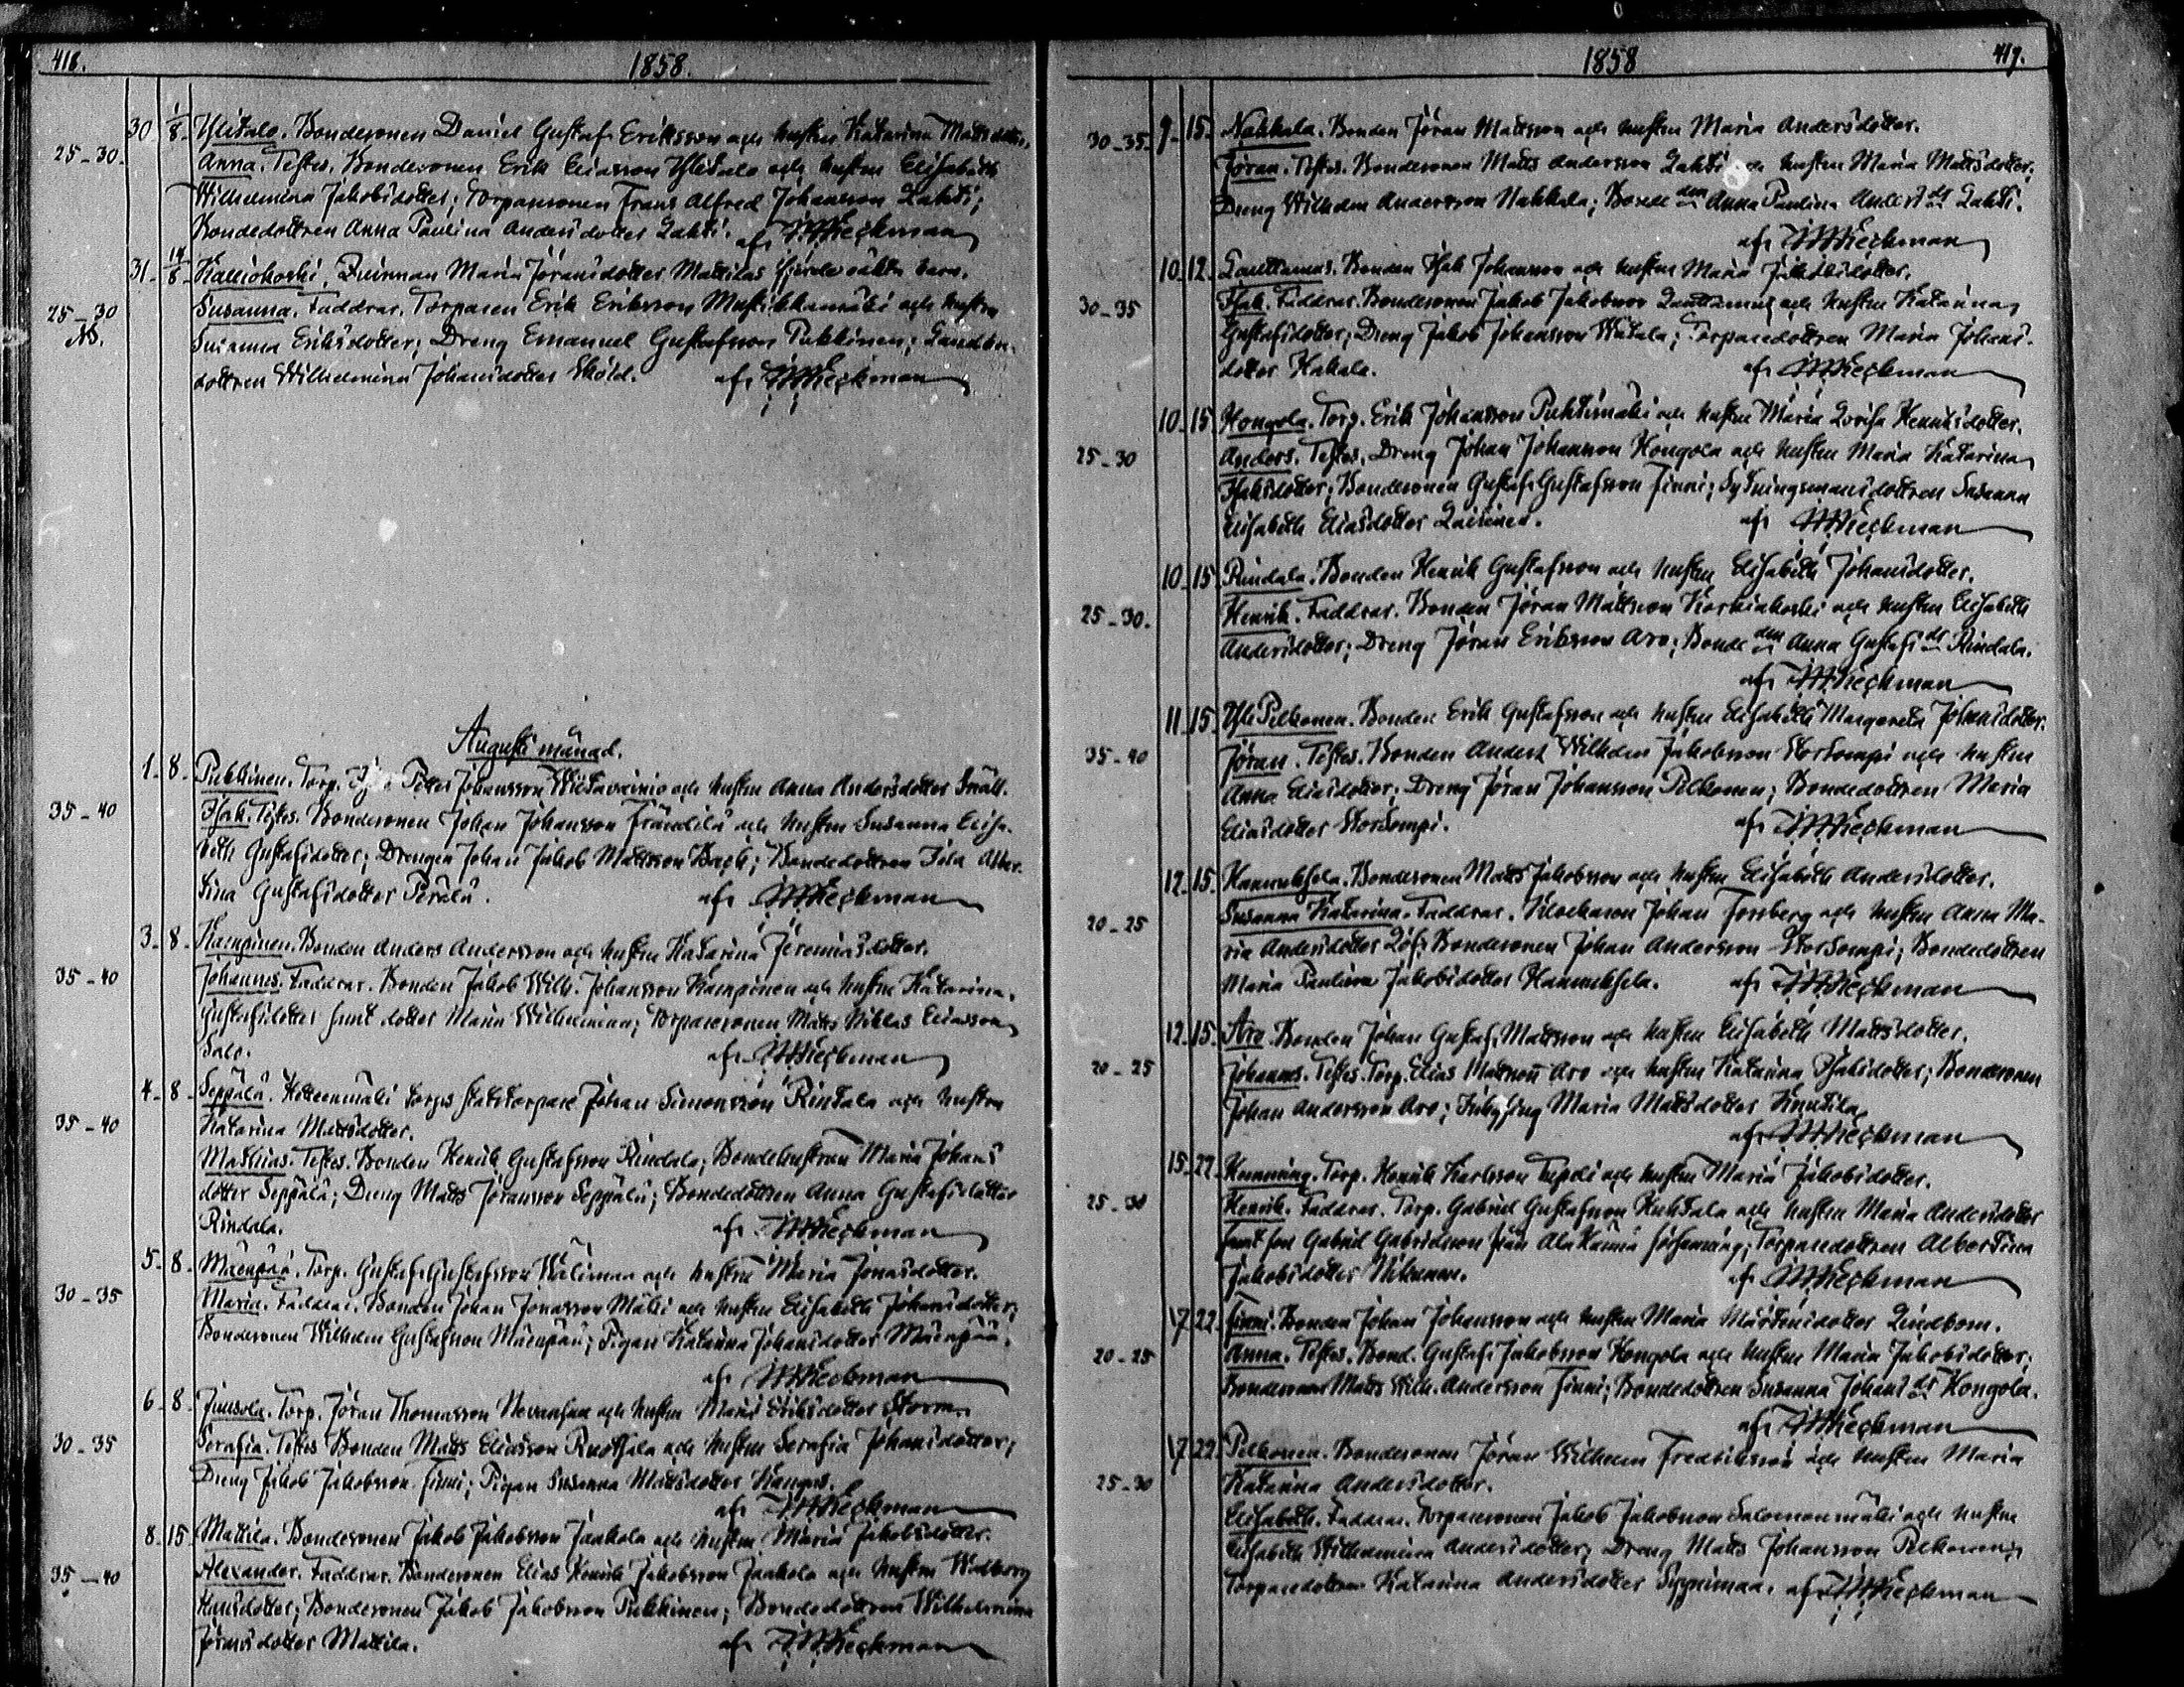 416.
1858.
30 1/8 Ylitalo. Bondesonen Daniel Gustaf Eriksson och hustru Katarina Mattsdotter,
25-30. Anna. Testes. Bondesonen Erik Eliasson Ylitalo och hustru Elisabeth
Wilhelmina Jakobsdotter; Torparesonen Frans Alfred Johansson Lahti;
Bondedottren Anna Paulina Andersdotter Lahti. af Wieckman
31. 14/8 Kalliokoski. Qvinnan Maria Jöransdotter Mattilas fjerde oäkta barn.
25-30 Susanna. Faddrar. Torparen Erik Eriksson Mustikkamäki och hustru
Susanna Eriksdotter; Dreng Emanuel Gustafsson Pukkinen;
dottren Wilhelmina Johansdotter Sköld. af Wieckman
Augusti månad.
1. 8. Pukkinen. Torp. Petter Johansson Wiitavainio och hustru Anna Andersdotter Snäll.
35-40 Isak. Testes. Bondesonen Johan Johansson Frändilä och hustru Susanna Elisa-
beth Gustafsdotter; Drengen Johan Jakob Mattsson Back; Bondedottren Ida Alber-
tina Gustafsdotter Perälä. af Wieckman
3. 8. Kamppinen. Bonden Anders Andersson och hustru Katarina Jeremiasdotter.
35-40 Johannes. Faddrar. Bonden Jakob Wilh. Johansson Kamppinen och hustru Katarina
Gustafsdotter samt dotter Maria Wilhelmina; Torparesonen Matts Niklas Eliasson
Salo. af Wieckman
4. 8. Seppälä. torps statstorpare Johan Simonsson Rintala och hustru
35-40 Katarina Mattsdotter.
Mathias. Testes. Bonden Henrik Gustafsson Rindala; Bondehustrun Maria Johans
dotter Seppälä; Dreng Matts Jöransson Seppälä; Bondedottren Anna Gustafsdotter
Rindala. af Wieckman
5. 8. Mäenpää. Torp. Gustaf Gustafsson Wälimaa och hustru Maria Jonasdotter.
30-35 Maria. Faddrar. Bonden Johan Jonasson Mäki och hustru Elisabeth Johansdotter;
Bondesonen Wilhelm Gustafsson Mäenpää; Pigan Katarina Johansdotter Mäenpää.
af Wieckman
6. 8. Jussola. Torp. Jöran Thomasson Nevanpää och hustru Maria Eriksdotter Storm.
30-35 Serafia. Testes Bonden Matts Eliasson Ruotsala och hustru Serafia Johansdotter;
Dreng Jakob Jakobsson Finni; Pigan Susanna Mattsdotter Kangas.
af Wieckman
8. 15. Mattila. Bondesonen Jakob Jakobsson Jaakola och hustru Maria Jakobsdotter.
35-40 Alexander. Faddrar. Bondesonen Elias Henrik Jakobsson Jaakola och hustru Walborg
dotter; Bondesonen Jakob Jakobsson Pukkinen; Bondedottren Wilhelmina
Jöransdotter Mattila. af Wieckman
1858
417.
9. 15. Nahkala. Bonden Jöran Mattsson och hustru Maria Andersdotter.
30-35 Jöran. Testes. Bondesonen Matts Andersson Lahti och hustru Maria Mattsdotter;
Dreng Wilhelm Andersson Nahkala; Bondedn Anna Paulina Andersdr Lahti.
af Wieckman
10. 12. Lauttamus. Bonden Isak Johansson och hustru Maria Jakobsdotter.
30-35 Isak. Faddrar. Bondesonen Jakob Jakobsson Lauttamus och hustru Katarina
Gustafsdotter; Dreng Jakob Johansson Wiitala; Torparedottren Maria Johans-
dotter Hakala. af Wieckman
10. 15. Hongola. Torp. Erik Johansson Puhtimäki och hustru Maria Lovisa Henriksdotter.
25-30 Anders. Testes. Dreng Johan Johansson Hongola och hustru Maria Katarina
Isaksdotter; Bondesonen Gustaf Gustafsson Finni; Sytningsmansdottren Susanna
Elisabeth Eliasdotter. af Wieckman
10. 15. Rindala. Bonden Henrik Gustafsson och hustru Elisabeth Johansdotter.
25-30. Henrik. Faddrar. Bonden Jöran Mattsson Korkiakoski och hustru Elisabeth
Andersdotter; Dreng Jöran Eriksson Aro; Bondedn Anna Gustafsdr Rindala.
af Wieckman
11. 15. Yli Pelkonen. Bonden Erik Gustafsson och hustru Elisabeth Margareta Johansdotter.
35-40 Jöran. Testes. Bonden Anders Wilhelm Jakobsson Stortompi och hustru
Anna Eliasdotter; Dreng Jöran Johansson Pelkonen; Bondedottren Maria
Eliasdotter Stortompi. af Wieckman
12. 15. Hannuksela. Bondesonen Matts Jakobsson och hustru Elisabeth Andersdotter.
20-25 Susanna Katarina. Faddrar. Klockaren Johan Forsberg och hustru Anna Ma-
ria Andersdotter Löf; Bondesonen Johan Andersson Stortompi; Bondedottren
Maria Paulina Jakobsdotter Hannuksela. af Wieckman
12. 15. Aro. Bonden Johan Gustaf Mattsson och hustru Elisabeth Mattsdotter.
20-25 Johannes. Testes. Torp. Elias Mattsson Aro och hustru Katarina Isaksdotter; Bondesonen
Johan Andersson Aro; Inhysing Maria Mattsdotter Knuutila.
af Wieckman
15. 22. Torp. Henrik Karlsson och hustru Maria Jakobsdotter.
25-30 Henrik. Faddrar. Torp. Gabriel Gustafsson Huhtala och hustru Maria Andersdotter
samt son Gabriel Gabrielsson från församling; Torparedottren Albertina
Jakobsdotter. af Wieckman
17. 22. Finni. Bonden Johan Johansson och hustru Maria Mårtensdotter Lindbom.
20-25 Anna. Testes. Bond. Gustaf Jakobsson Hongola och hustru Maria Jakobsdotter;
Bondesonen Matts Wilh. Andersson Finni; Bondedottren Susanna Johansdr Hongola.
af Wieckman
17. 22. Pelkonen. Bondesonen Jöran Wilhelm Fredriksson och hustru Maria
25-30 Katarina Andersdotter.
Elisabeth. Faddrar. Torparesonen Jakob Jakobsson Salomonmäki och hustru
Elisabeth Wilhelmina Andersdotter; Dreng Matts Johansson Pelkonen;
Torparedottren Katarina Andersdotter Syynimaa. af Wieckman